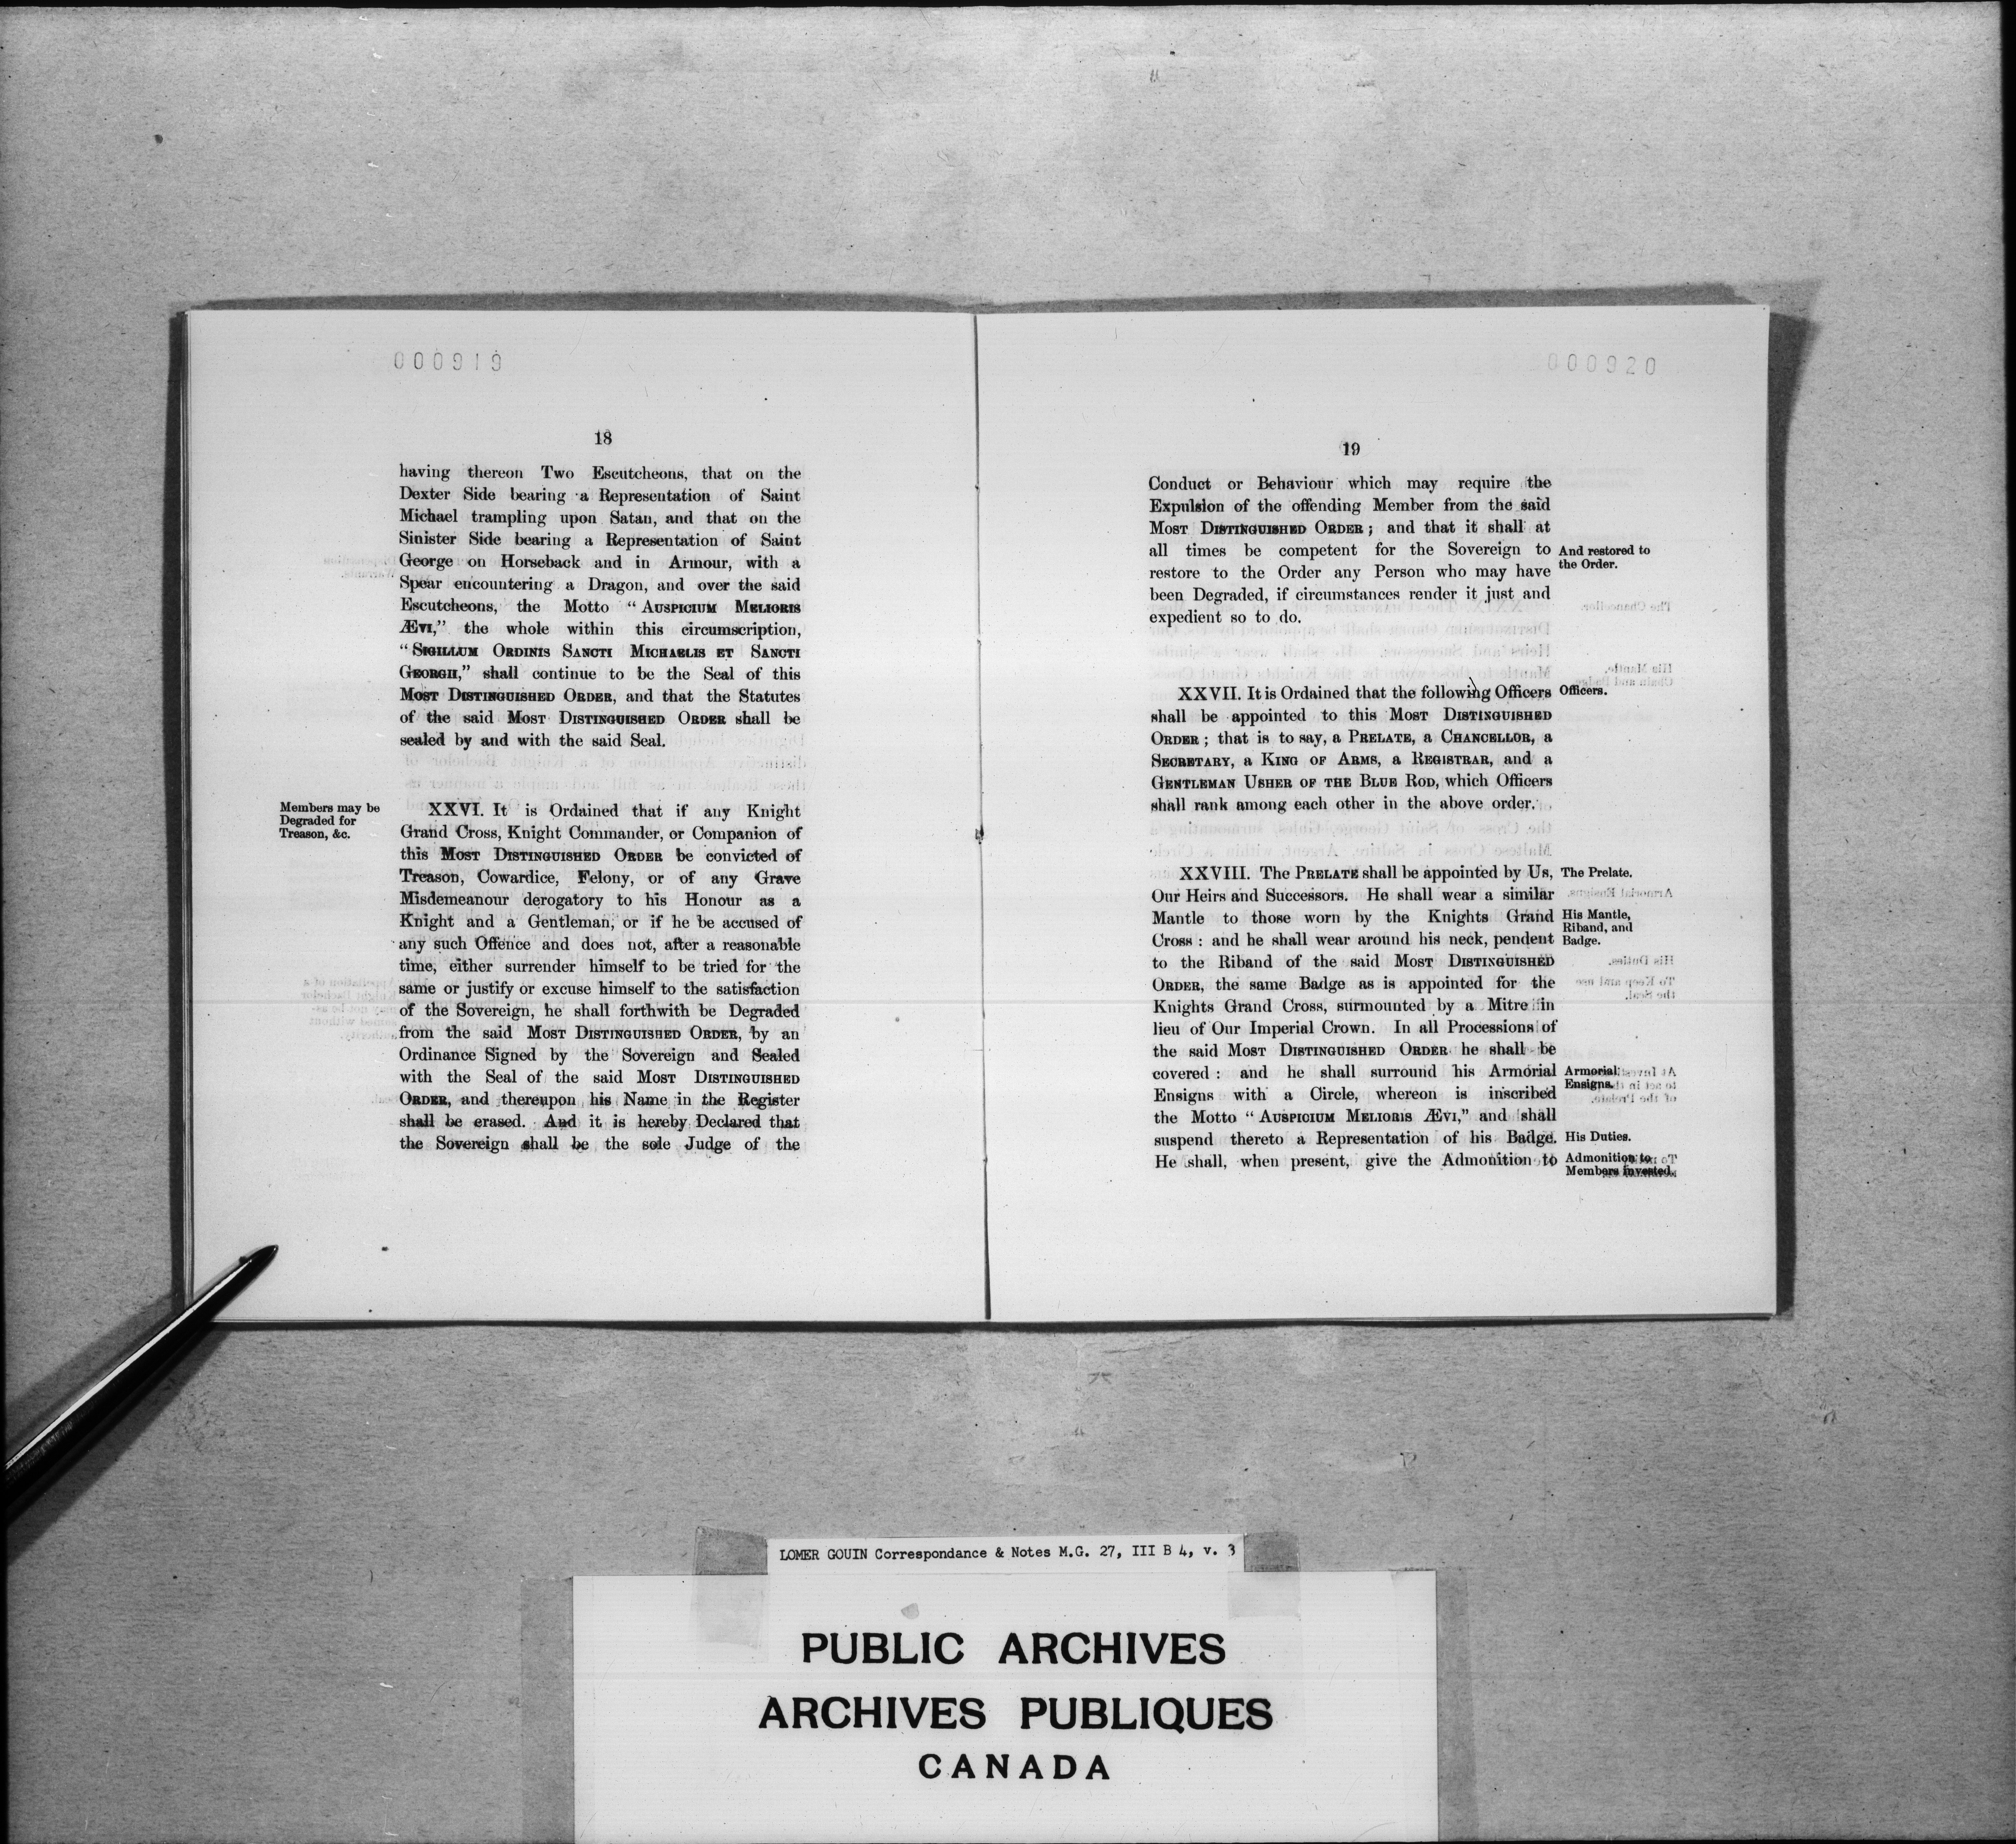 000919
18
having thereon Two Escutcheons, that on the
Dexter Side bearing a Representation of Saint
Michael trampling upon Satan, and that on the
Sinister Side bearing a Representation of Saint
George on Horseback and in Armour, with a
Spear encountering a Dragon, and over the said
Escutcheons, the Motto “AUSPICIUM MELIORIS
ÆVI,” the whole within this circumscription,
“SIGILLUM ORDINIS SANCTI MICHAELIS ET SANCTI
GEORGII,” shall continue to be the Seal of this
MOST DISTINGUISHED ORDER, and that the Statutes
of the said MOST DISTINGUISHED ORDER shall be
sealed by and with the said Seal.
Members may be
Degraded for
Treason, &c.
XXVI. It is Ordained that if any Knight
Grand Cross, Knight Commander, or Companion of
this MOST DISTINGUISHED ORDER be convicted of
Treason, Cowardice, Felony, or of any Grave
Misdemeanour derogatory to his Honour as a
Knight and a Gentleman, or if he be accused of
any such Offence and does not, after a reasonable
time, either surrender himself to be tried for the
same or justify or excuse himself to the satisfaction
of the Sovereign, he shall forthwith be Degraded
from the said MOST DISTINGUISHED ORDER, by an
Ordinance Signed by the Sovereign and Sealed
with the Seal of the said MOST DISTINGUISHED
ORDER, and thereupon his Name in the Register
shall be erased. And it is hereby Declared that
the Sovereign shall be the sole Judge of the
000920
19
Conduct or Behaviour which may require the
Expulsion of the offending Member from the said
MOST DISTINGUISHED ORDER; and that it shall at
all times be competent for the Sovereign to
restore to the Order any Person who may have
been Degraded, if circumstances render it just and
expedient so to do.
And restored to
the Order.
XXVII. It is Ordained that the following Officers
shall be appointed to this MOST DISTINGUISHED
ORDER; that is to say, a PRELATE, a CHANCELLOR, a
SECRETARY, a KING OF ARMS, a REGISTRAR, and a
GENTLEMAN USHER OF THE BLUE ROD, which Officers
shall rank among each other in the above order.
Officers.
XXVIII. The PRELATE shall be appointed by Us,
Our Heirs and Successors. He shall wear a similar
Mantle to those worn by the Knights Grand
Cross: and he shall wear around his neck, pendent
to the Riband of the said MOST DISTINGUISHED
ORDER, the same Badge as is appointed for the
Knights Grand Cross, surmounted by a Mitre in
lieu of Our Imperial Crown. In all Processions of
the said MOST DISTINGUISHED ORDER he shall be
covered: and he shall surround his Armorial
Ensigns with a Circle, whereon is inscribed
the Motto “AUSPICIUM MELIORIS ÆVI,” and shall
suspend thereto a Representation of his Badge.
He shall, when present, give the Admonition to
The Prelate.
His Mantle,
Riband, and
Badge.
Armorial
Ensigns.
His Duties.
Admonition to
Members invested.
LOMER GOUIN Correspondance & Notes M.G. 27, III B 4, v. 3
PUBLIC ARCHIVES
ARCHIVES PUBLIQUES
CANADA